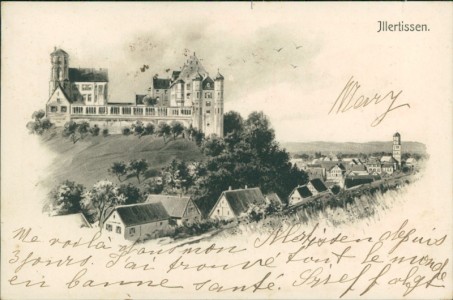 Illertissen.
Mary
Me voilà dans mon Illertissen depuis
3 jours. J'ai trouvé tout le monde
en bonne santé. Brief folgt.